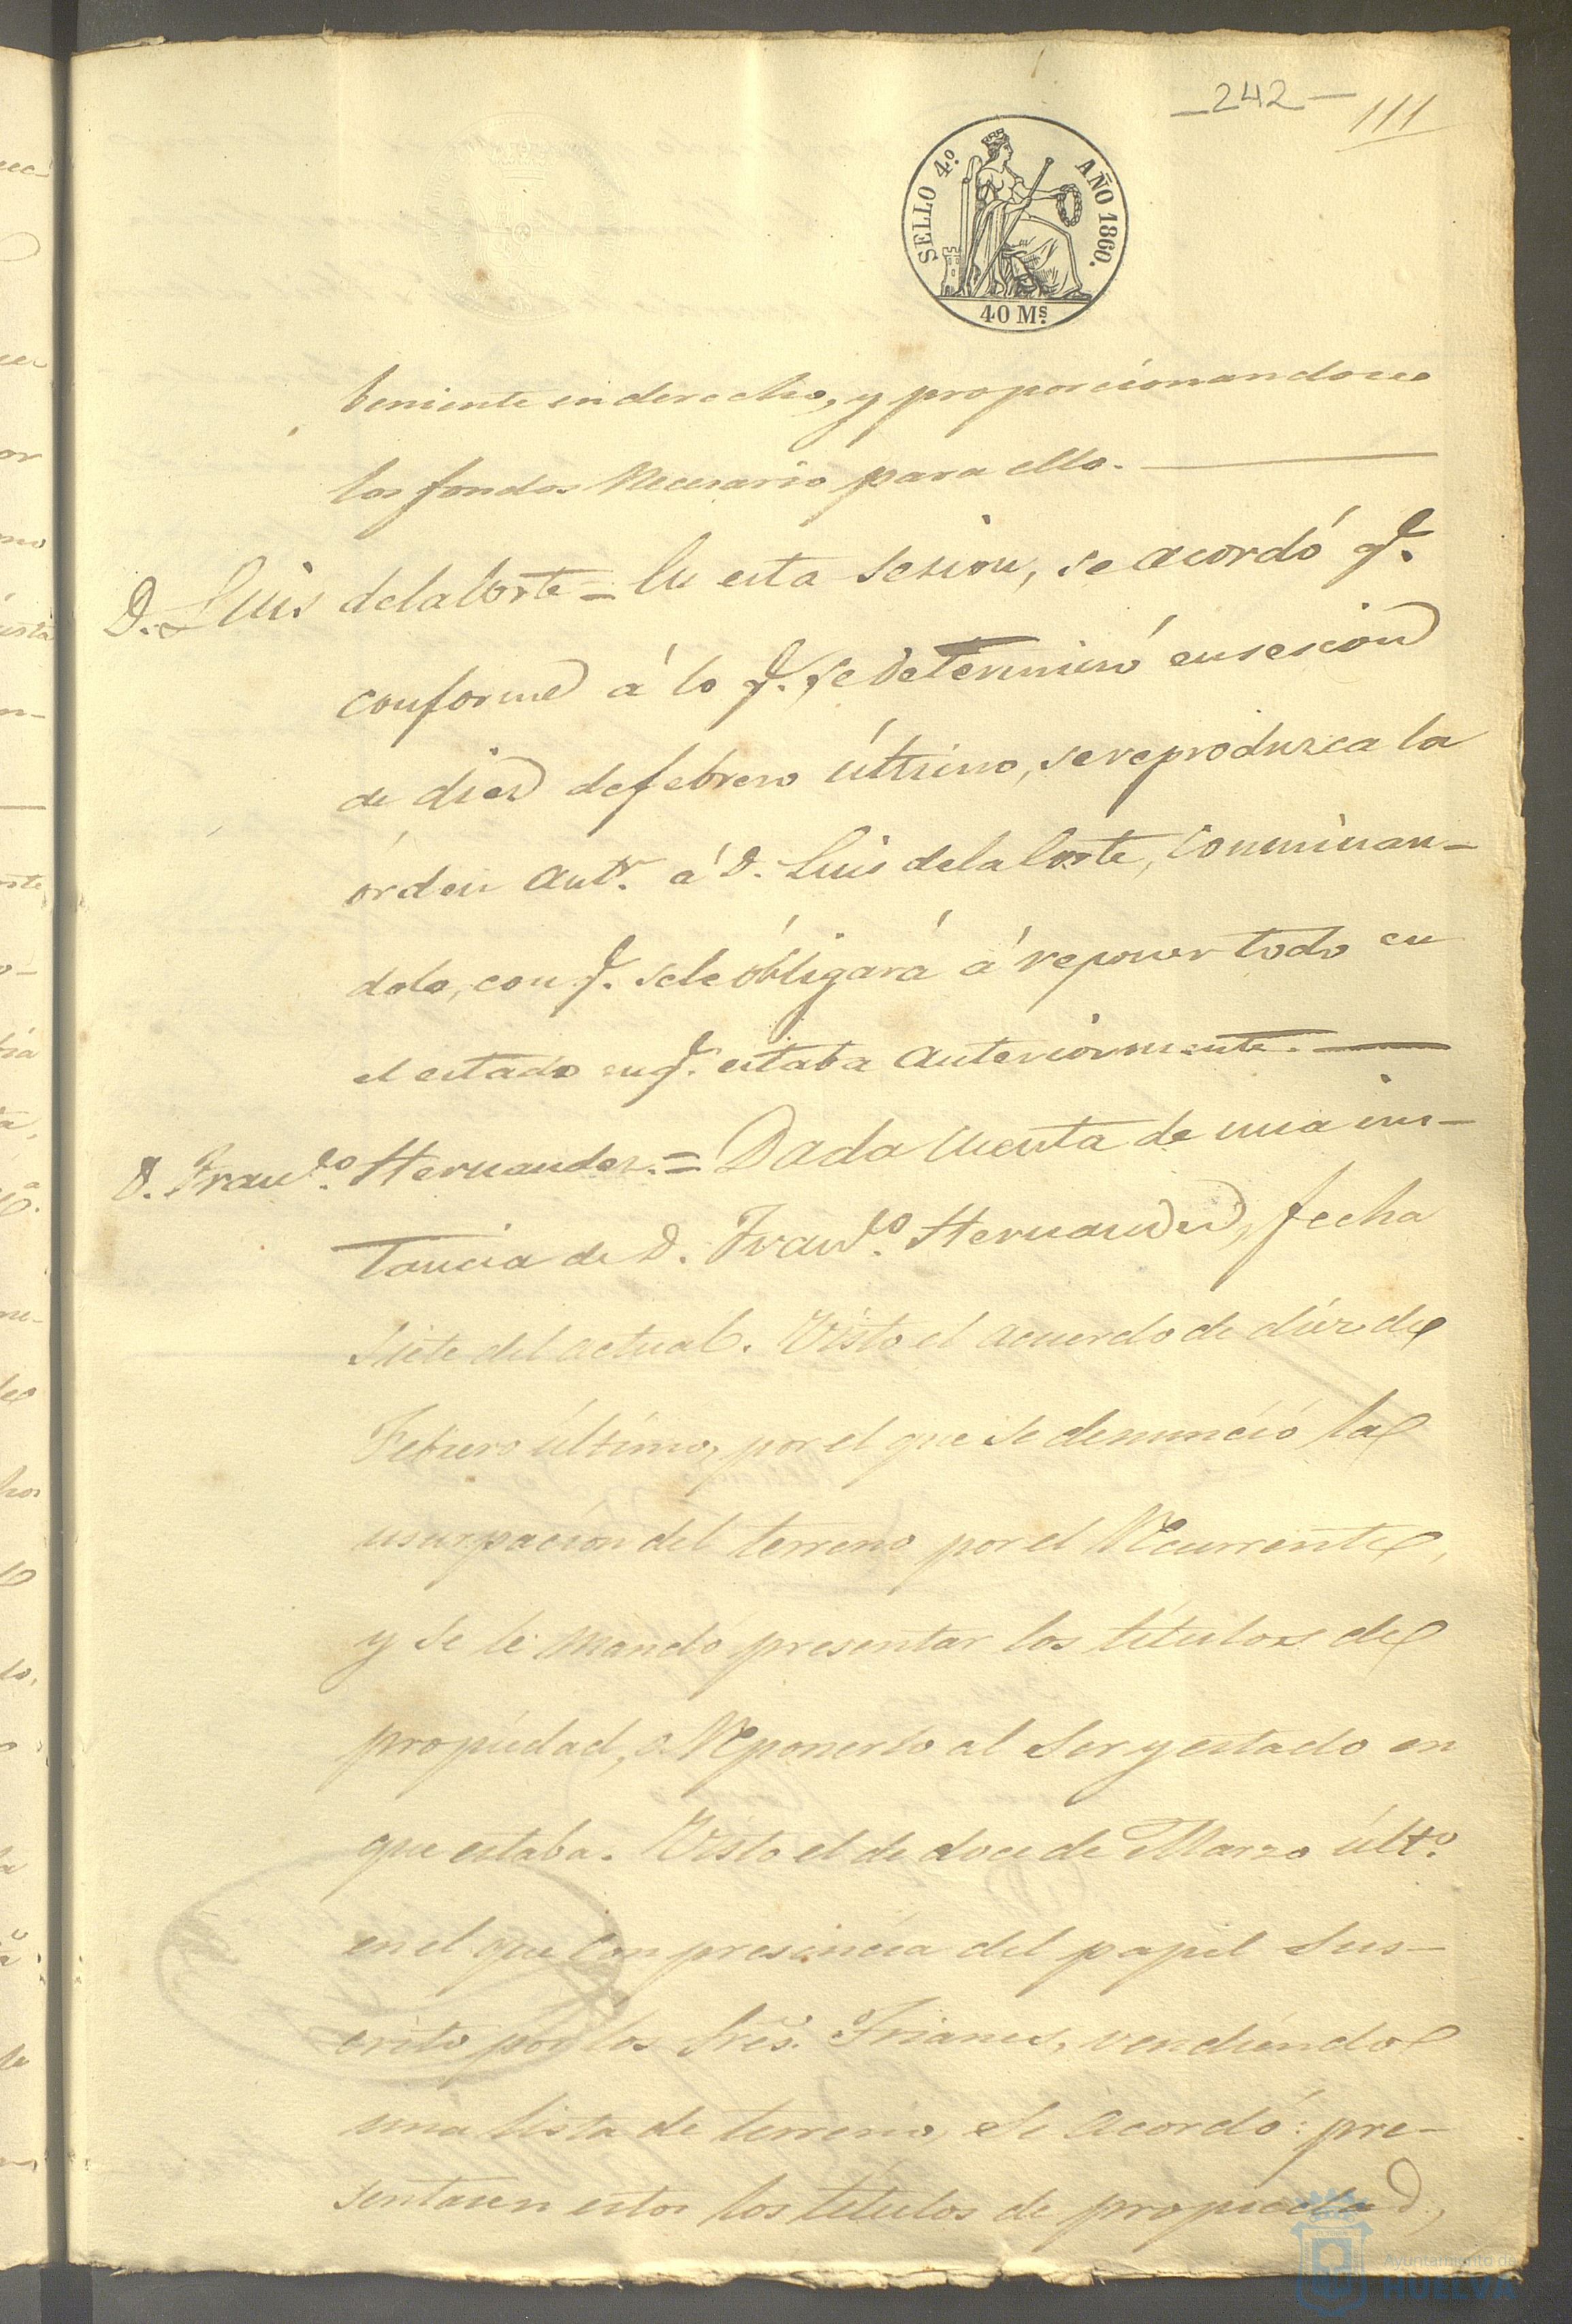 _242_
111
SELLO 4.º AÑO 1860.
40 Ms.
beniente en derecho, y proporcionandose
los fondos Necesario para ello.
D. Luis de la Corte = En esta sesion, se acordó q.
conforme á lo q. se determinó en sesion
de diez de febrero último, se reproduzca la
órden antr. á D. Luis de la Corte, conminan-
dolo, con q. se le óbligará á reponer todo en
el estado en q. estaba anteriormente.
D. Franco. Hernandez. = Dada Cuenta de una ins-
tancia de D. Franco. Hernandez, fecha
siete del actual. Visto el acuerdo de diez de
Febrero último, por el que se denunció la
usurpacion del terreno por el Recurrente,
y se le mandó presentar los títulos de
propiedad, o Reponerlo al Ser y estado en
que estaba. Visto el de doce de Marzo últo.
en el que con presencia del papel Sus-
crito por los Sres. Trianes, vendiendo
una lista de terreno, se acordó: pre-
sentasen estos los títulos de propiedad,
Ayuntamiento de
HUELVA